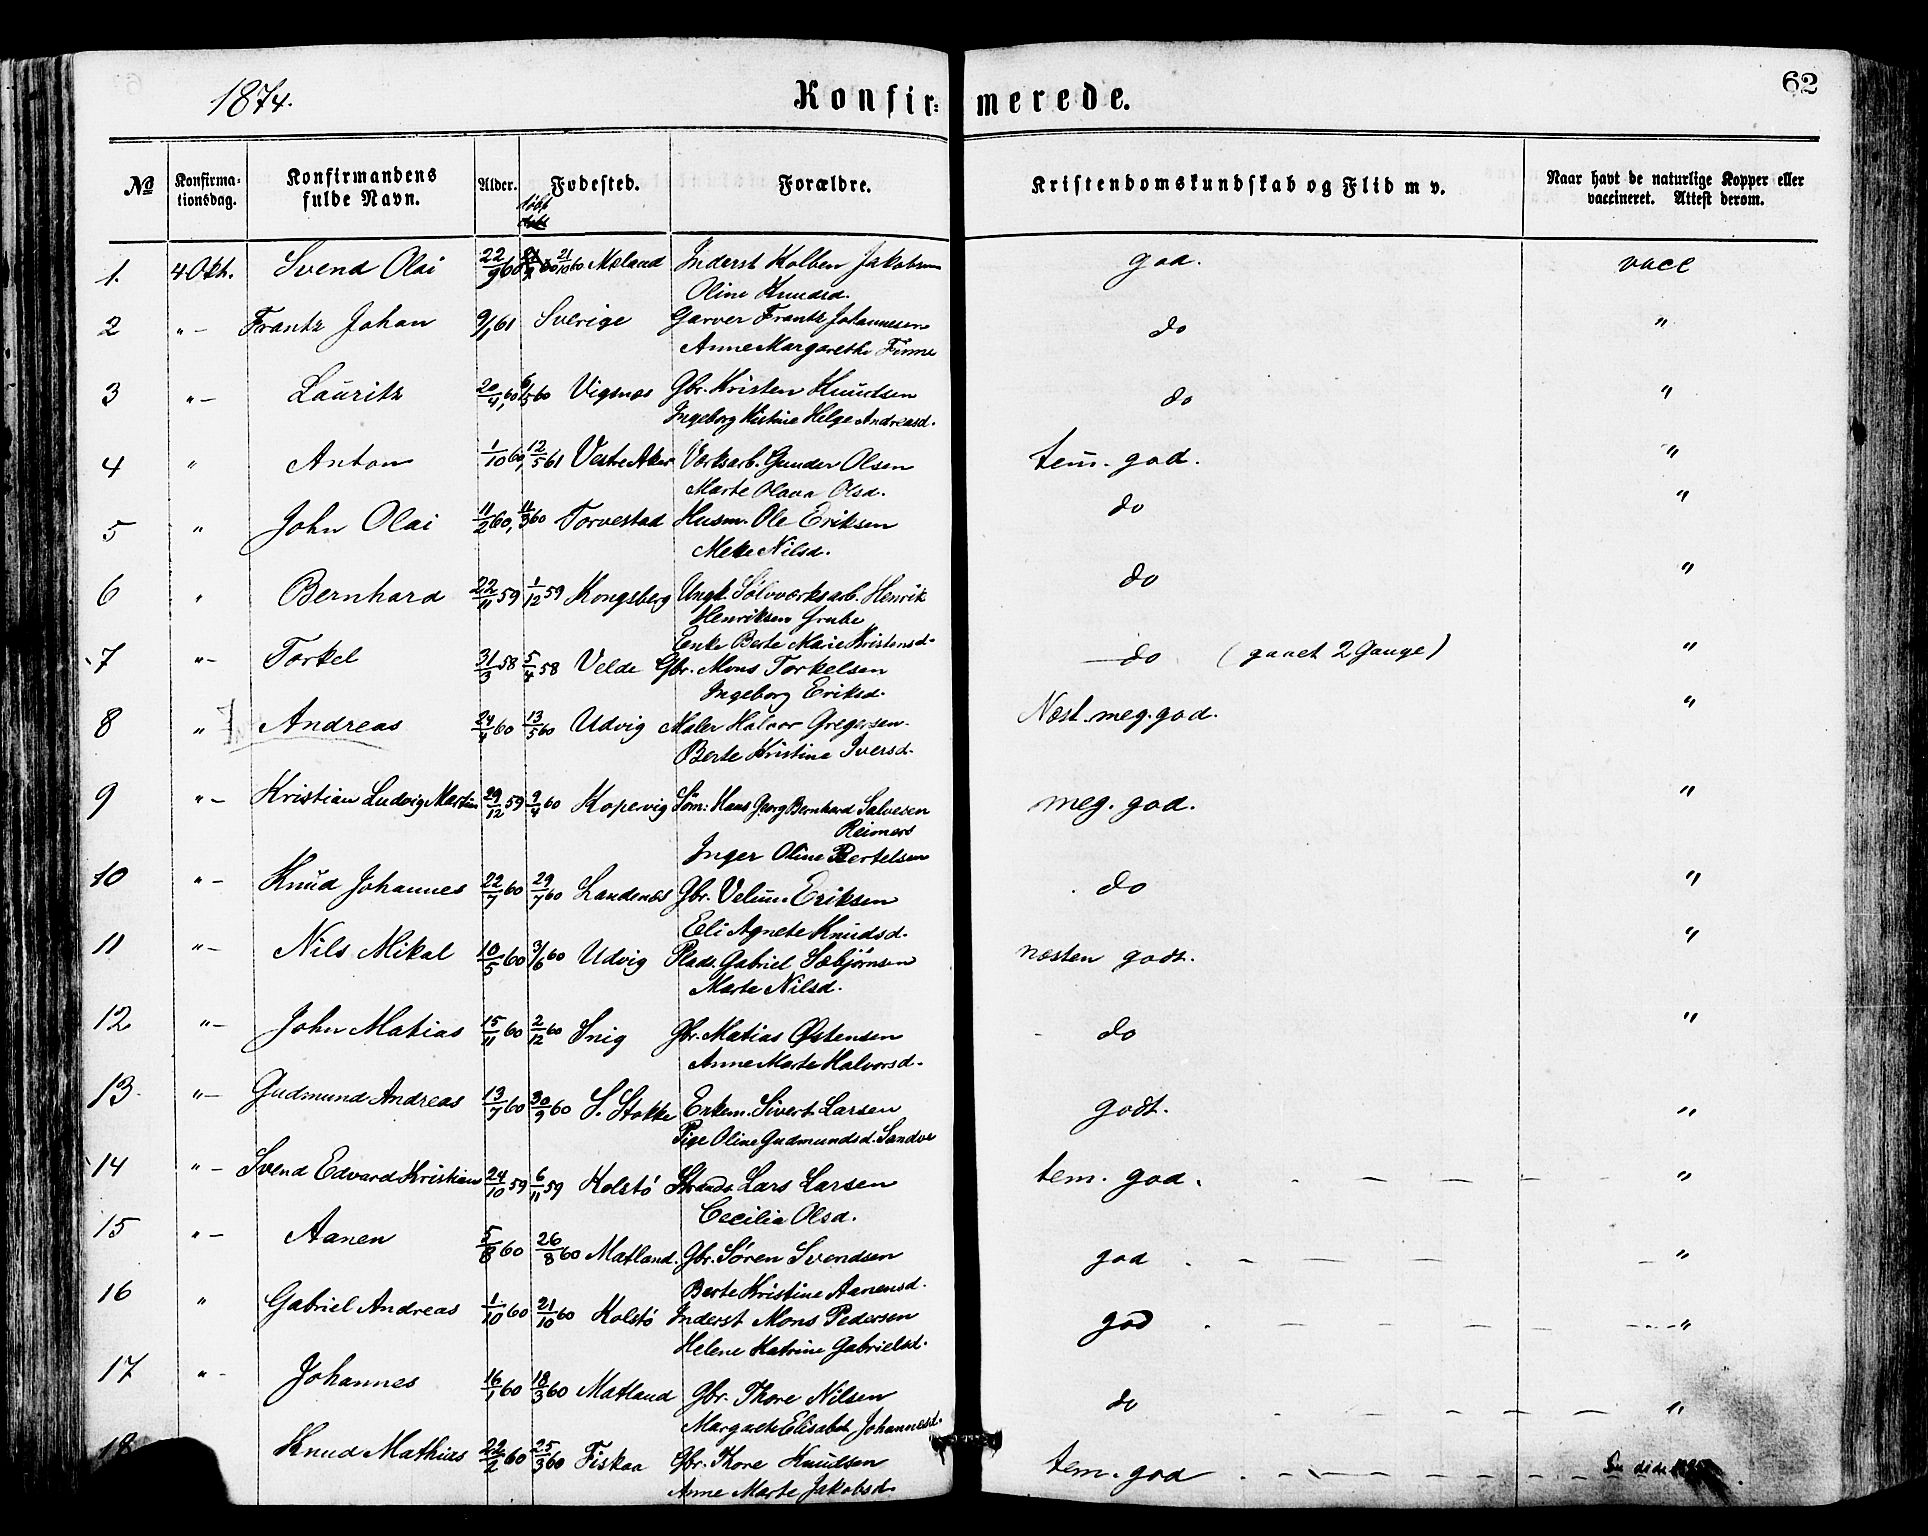 1874. Konfir- merede. 62
No Konfirma- Konfirmandens Alder. Fødested. Forældre. Kristendomskundskab og Flid m v. Naar havt de naturlige Kopper eller
tionsdag. fulde Navn. døbt vaccineret. Attest derom.
1. 4 Okt. Svend Olai 22/9 60 21/10 60 Meland Inderst Kolben Jakobsen god. vacc
Oline Knudsd.
2 " - Frantz Johan 9/1 61 Sverige Garver Frantz Johannesen do "
Anne Margarethe
3 " - Lauritz 20/4 60 6/5 60 Vigsnes Gbr. Kristen Knudsen do "
Ingeborg Kistine Helge Andreasd.
4 " Anton 1/10 60, 12/5 61 Vestre Aker Værksarb. Gunder Olsen tem. god. "
Marte Olava Olsd.
5 " John Olai 11/2 60, 11/3 60 Torvestad Husm. Ole Eriksen do "
Mette Nilsd.
6 " Bernhard 22/11 59 1/12 59 Kongsberg Ungk. Sølvværksarb. Henrik do "
Henriksen Grube
Enke Berte Marie Kristensd.
7 " - Torkel 31/3 58 5/4 58 Velde Gbr. Mons Torkelsen do (gaaet 2 Gange) "
Ingeborg Eriksd.
8 " Andreas 24/4 60 13/5 60 Udvig Maler Halvor Gregersen. Næst. meg. god. "
Berte Kristine Iversd.
9 " - Kristian Ludvig Martin 29/12 59 9/4 60 Kopervig Søm: Hans Georg Bernhard Salvesen meg. god. "
Reimers
Inger Oline Bertelsen
10 " - Knud Johannes 22/7 60 29/7 60 Landenes Gbr. Velum Eriksen do "
Eli Agnete Knudsd.
11 " - Nils Mikal 10/5 60 3/6 60 Udvig Plads. Gabriel Sæbjørnsen næsten godt. "
Marte Nilsd.
12 " - John Matias 15/11 60 2/12 60 Snig Gbr. Matias Østensen do "
Anne Marte Halvorsd.
13. " - Gudmund Andreas 13/7 60 30/9 60 S. Stokke Enkem. Sivert Larsen godt. "
Pige Oline Gudmundsd. Sandve
14 " - Svend Edvard Kristian 24/10 59 6/11 59 Kolstø Strands. Lars Larsen tem. god. "
Cecilia Olsd.
15 " - Aanen 5/8 60 26/8 60 Matland. Gbr. Søren Svendsen god "
Berte Kristine Aanensd.
16 " Gabriel Andreas 1/10 60 21/10 60 Kolstø Inderst Mons Pedersen god "
Helene Katrine Gabrielsd.
17 " - Johannes 16/1 60 18/3 60 Matland Gbr. Thore Nilsen do "
Margrete Elisabet Johannesd.
18 Knud Mathias 22/2 60 25/3 60 Fiskaa Gbr. Thore Knudsen tem. god
Anne Marte Jakobsd.